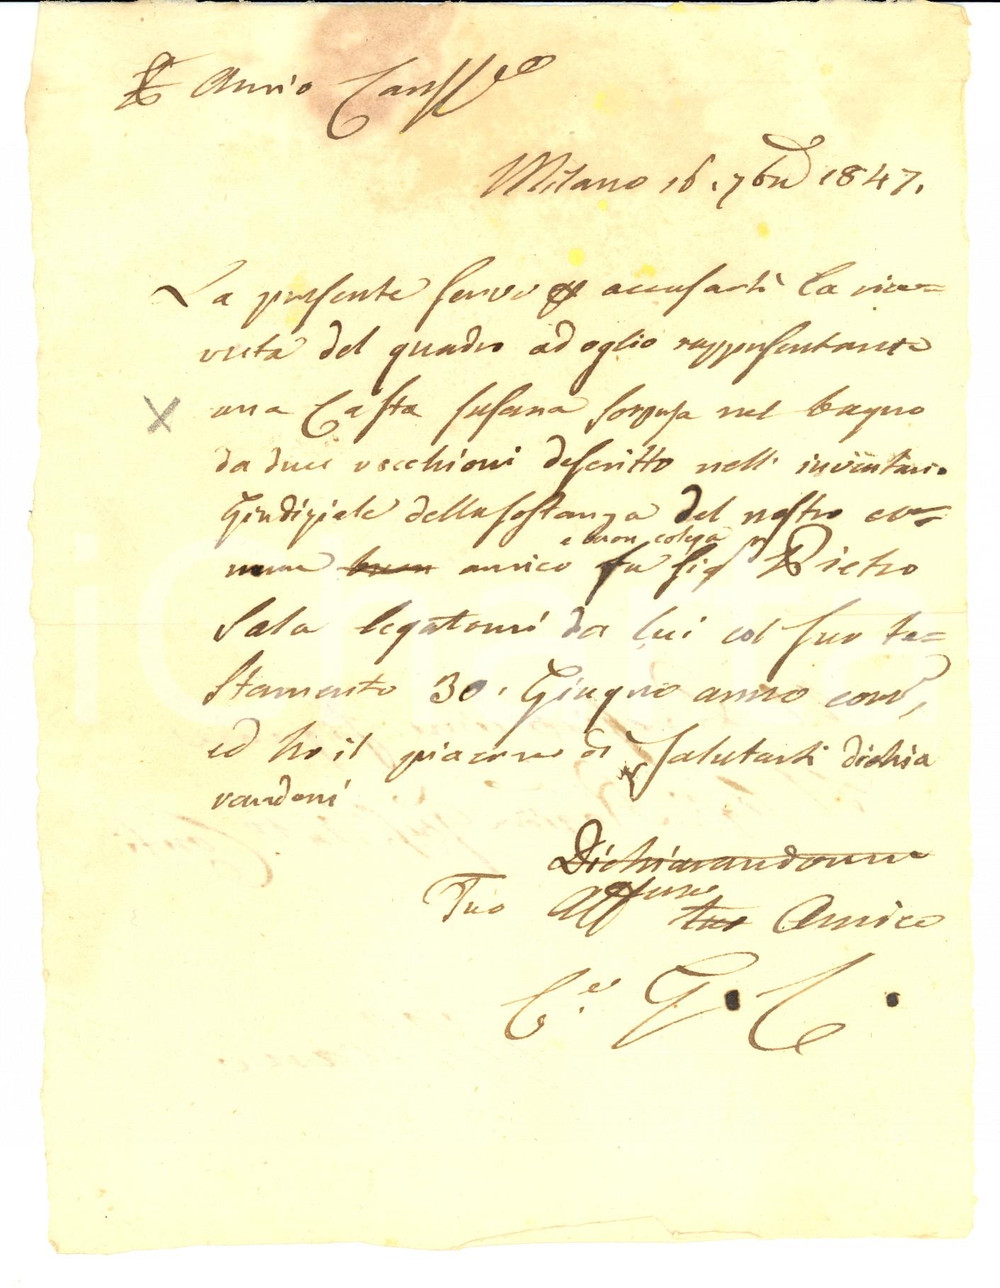 Amico Cariss.o
Milano 16. 7bre 1847.
La presente serve p accusarti la rice=
vuta del quadro ad oglio rappresentante
una Casta Susana sorpresa nel bagno
da due vecchioni descritto nell' inventario
Giudiziale della sostanza del nostro co=
e buon colega
mune buon amico fu Sig.r Pietro
Sala legatomi da lui col suo te=
stamento 30. Giugno anno corr.,
ed ho il piacere di salutarti dichia
randomi
Dichiarandomi
Tuo Aff.mo tuo Amico
C.e G. C.